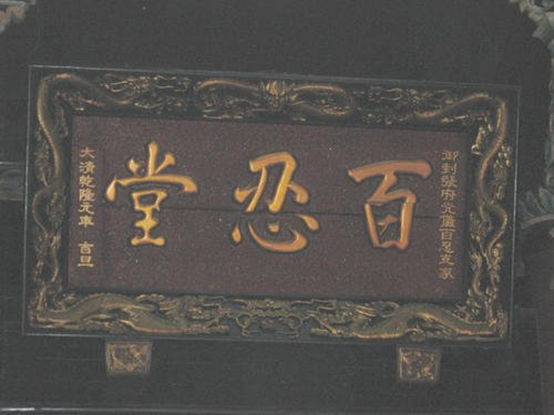 御封張府九世百忍之家
百忍堂
大清乾隆元年 吉旦